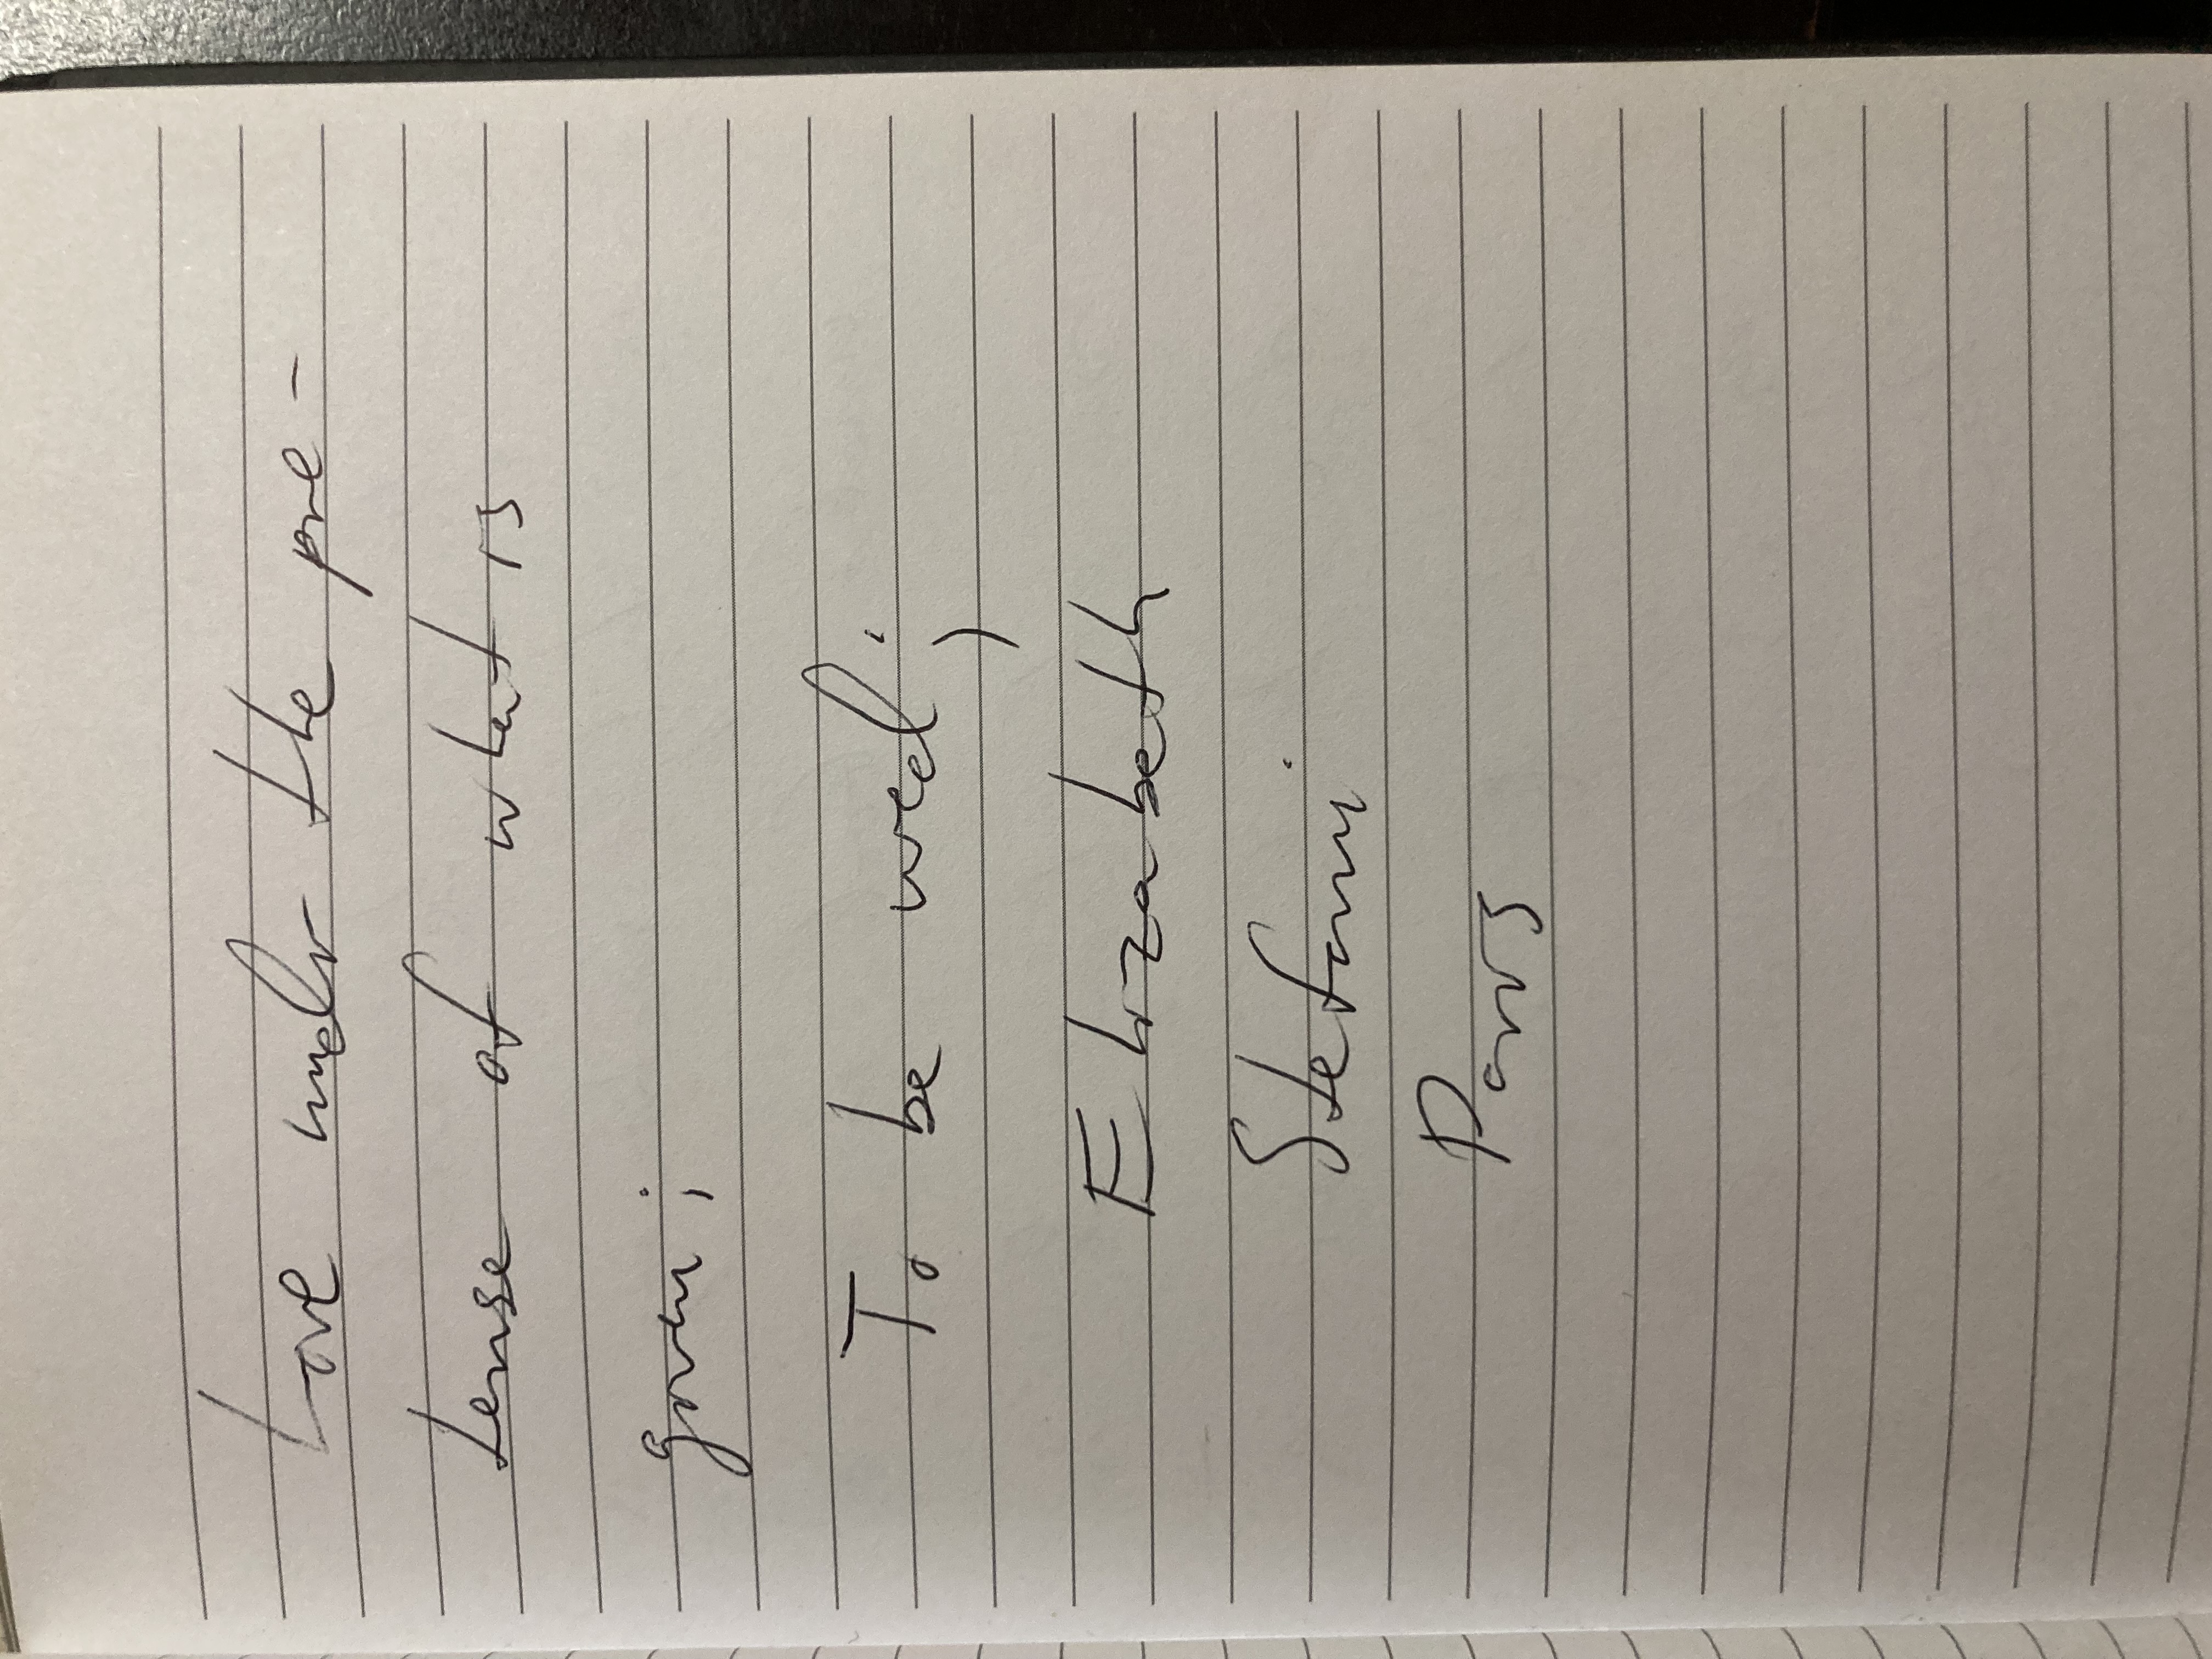 Love under the pre-
tense of what is
given;
To be wed;
Elizabeth
Stefani
Paris